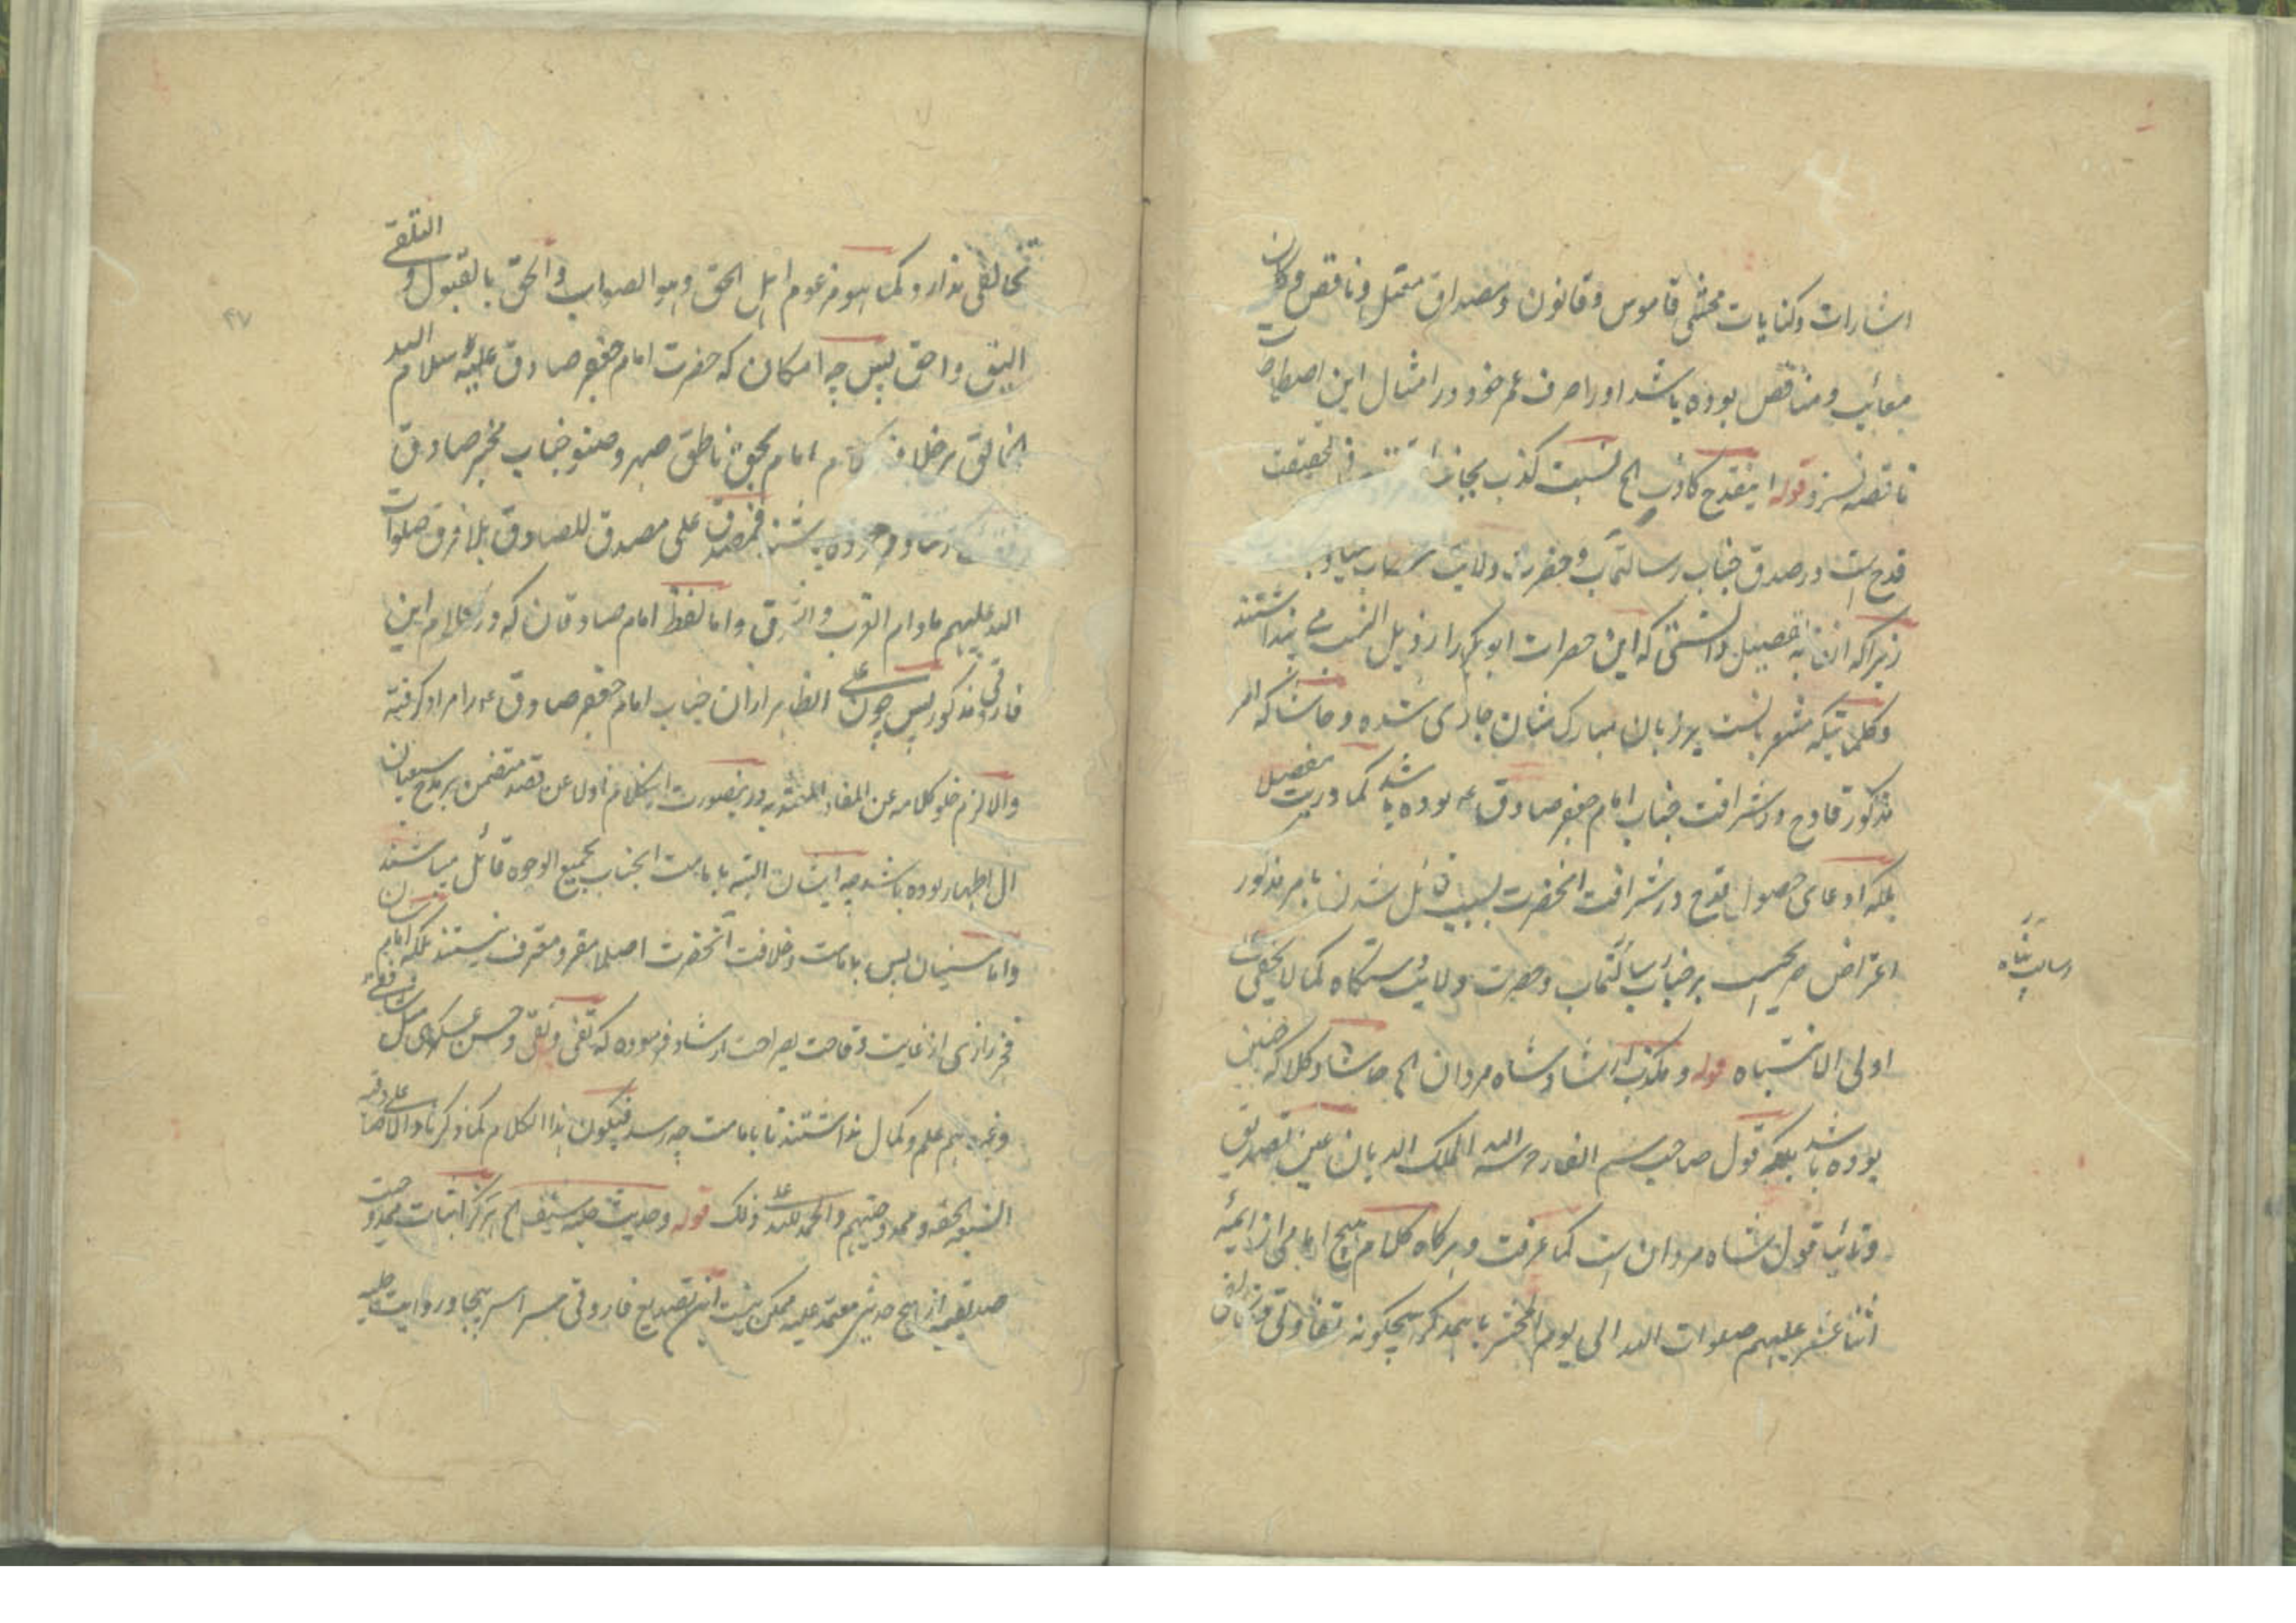 اشارات و کنایات محشی قاموس و قانون و مصداق مهمل و ناقص و کان
معائب و مناقص بوده باشد او را صرف عمر خود در امثال این اصطلاحات
ناقصه نسزد قوله اینقدح کاذب الخ نسبت کذب بجناب فی الحقیقت
قدح است در صدق جناب رسالتمآب و حضرت ولایت
زیراکه ازین به تفصیل دانستی که این حضرات ابوبکر را رذیل النسب می پنداشتند
و کلماتیکه مشعر بانست بر زبان مبارک شان جاری شده و حاشا که امر
مذکور قادح در شرافت جناب امام جعفر صادق ع بوده باشد کما دریت مفصلا
بلکه ادعای حصول قدح در شرافت آنحضرت بسبب قائل شدن بامر مذکور
اعتراض صریحیست بر جناب رسالتمآب و حضرت ولایت دستگاه کما لا یخفی علی
رسالت پناه
اولی الانتباه قوله و مکذب ارشاد شاه مردان الخ حاشا و کلا که چنین
بوده باشد بلکه قول صاحب سم الفار حرسه الله الملک الدیان عین تصدیق
و تائید قول شاه مردان است کما عرفت و هرگاه کلام هیچ امامی از ائمهٔ
اثنا عشر علیهم صلوات الله الی یوم المحشر با همدگر هیچگونه تفاوتی و تناقض
تخالفی ندارد کما هو مزعوم اهل الحق و هو الصواب و الحق بالقبول و التلقی
الیق و احق پس چه امکان که حضرت امام جعفر صادق علیه سلام الله
الخالق بر خلاف کلام امام بحق ناطق صهر و صنو جناب مخبر صادق
فرموده باشند فمصدق علی مصدق للصادق بلا فرق صلوات
الله علیهم مادام الغرب و الشرق و اما لفظ امام صادقان که در کلام این
فاروقی مذکور پس چون علی الظاهر ازان جناب امام جعفر صادق ع را مراد گرفته
و الا لزم خلو کلامه عن المفاد المعتد به درینصورت این کلام اولا عن قصد متضمن بر مدح شیعیان
آل اطهار بوده باشد چه ایشان البته بامامت انجناب بجمیع الوجوه قائل میباشند
و اما سنیان پس بامامت و خلافت آنحضرت اصلا مقر و معترف نیستند بلکه امام شان
فخر رازی از غایت وقاحت بصراحت ارشاد فرموده که تقی و نقی و حسن عسکری
و غیرهم علم و کمال نداشتند تا بامامت چه رسد فیکون هذا الکلام کما ذکرناه
الشیعه الحقه و ممدوحیتهم و الحمد لله علی ذلک قوله و حدیث حلیه سیف الخ هرگز اثبات ممدوحیت
صدیقیه از هیچ حدیثی معتمد علیه ممکن نیست این تصدیع فاروقی سراسر بیجا و روایت حلیه